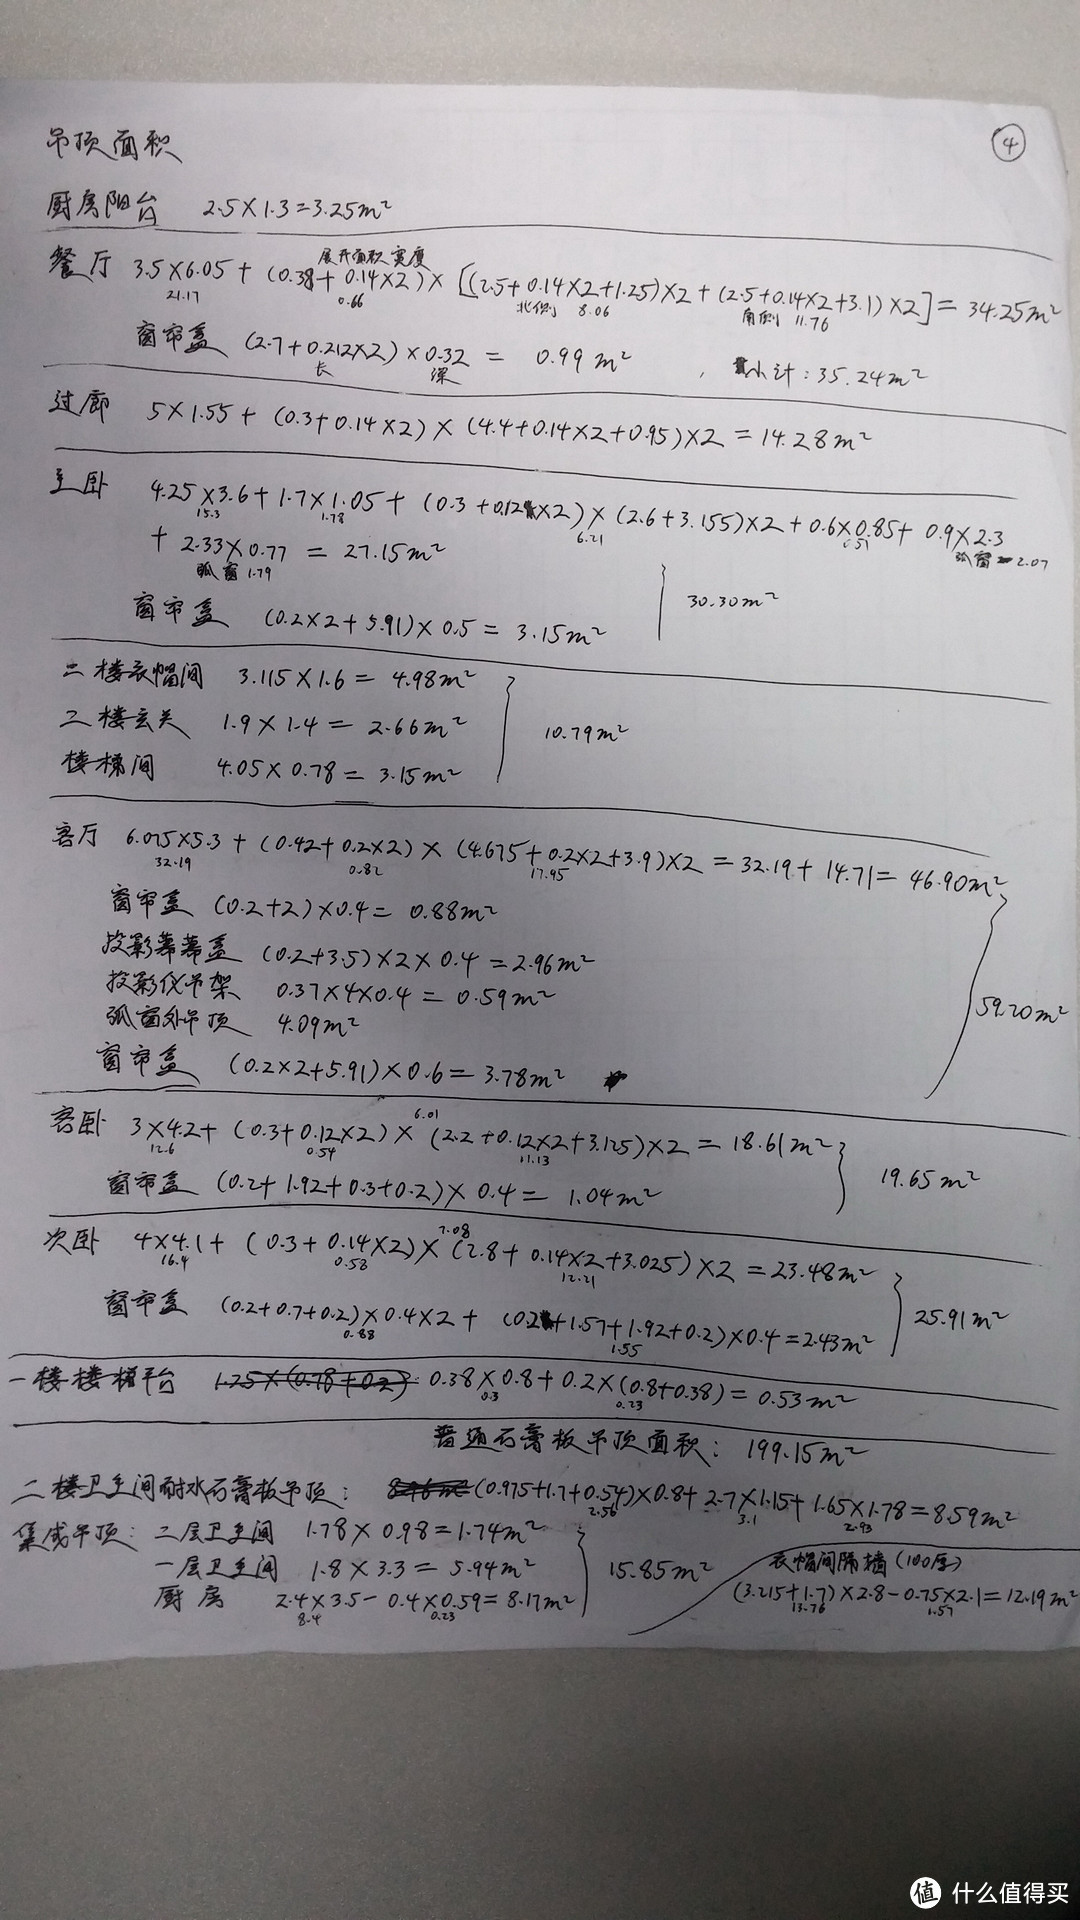 ④
吊顶面积
厨房阳台 2.5×1.3=3.25m²
展开面积宽度
餐厅 3.5×6.05+(0.38+0.14×2)×[(2.5+0.14×2+1.25)×2+(2.5+0.14×2+3.1)×2]=34.25m²
21.17 0.66 北侧 8.06 南侧 11.76
窗帘盒 (2.7+0.212×2)×0.32 = 0.99m² , 小计:35.24m²
长 深
过廊 5×1.55+(0.3+0.14×2)×(4.4+0.14×2+0.95)×2=14.28m²
主卧 4.25×3.6+1.7×1.05+(0.3+0.12×2)×(2.6+3.155)×2+0.6×0.85+0.9×2.3
15.3 1.78 6.21 0.51 弧窗 2.07
+ 2.33×0.77 = 27.15m²
弧窗 1.79
30.30m²
窗帘盒 (0.2×2+5.91)×0.5=3.15m²
二楼衣帽间 3.115×1.6=4.98m²
二楼玄关 1.9×1.4=2.66m² 10.79m²
楼梯间 4.05×0.78=3.15m²
客厅 6.075×5.3+(0.42+0.2×2)×(4.675+0.2×2+3.9)×2=32.19+14.71=46.90m²
32.19 0.82 17.95
窗帘盒 (0.2+2)×0.4=0.88m²
投影幕幕盒 (0.2+3.5)×2×0.4=2.96m²
投影仪吊架 0.37×4×0.4=0.59m²
59.20m²
弧窗外吊顶 4.09m²
窗帘盒 (0.2×2+5.91)×0.6=3.78m²
6.01
客卧 3×4.2+(0.3+0.12×2)×(2.2+0.12×2+3.125)×2=18.61m²
12.6 0.54 11.13
19.65m²
窗帘盒 (0.2+1.92+0.3+0.2)×0.4=1.04m²
7.08
次卧 4×4.1+(0.3+0.14×2)×(2.8+0.14×2+3.025)×2=23.48m²
16.4 0.58 12.21
25.91m²
窗帘盒 (0.2+0.7+0.2)×0.4×2+(0.2+1.57+1.92+0.2)×0.4=2.43m²
0.88 1.55
一楼楼梯平台 1.25×(0.78+0.2) 0.38×0.8+0.2×(0.8+0.38)=0.53m²
0.3 0.23
普通石膏板吊顶面积: 199.15m²
二楼卫生间耐水石膏板吊顶: (0.975+1.7+0.54)×0.8+2.7×1.15+1.65×1.78=8.59m²
2.56 3.1 2.93
集成吊顶: 二层卫生间 1.78×0.98=1.74m²
一层卫生间 1.8×3.3=5.94m² 15.85m²
厨房 2.4×3.5-0.4×0.59=8.17m²
8.4 0.23
衣帽间隔墙(100厚)
(3.215+1.7)×2.8-0.75×2.1=12.19m²
13.76 1.57
值 什么值得买